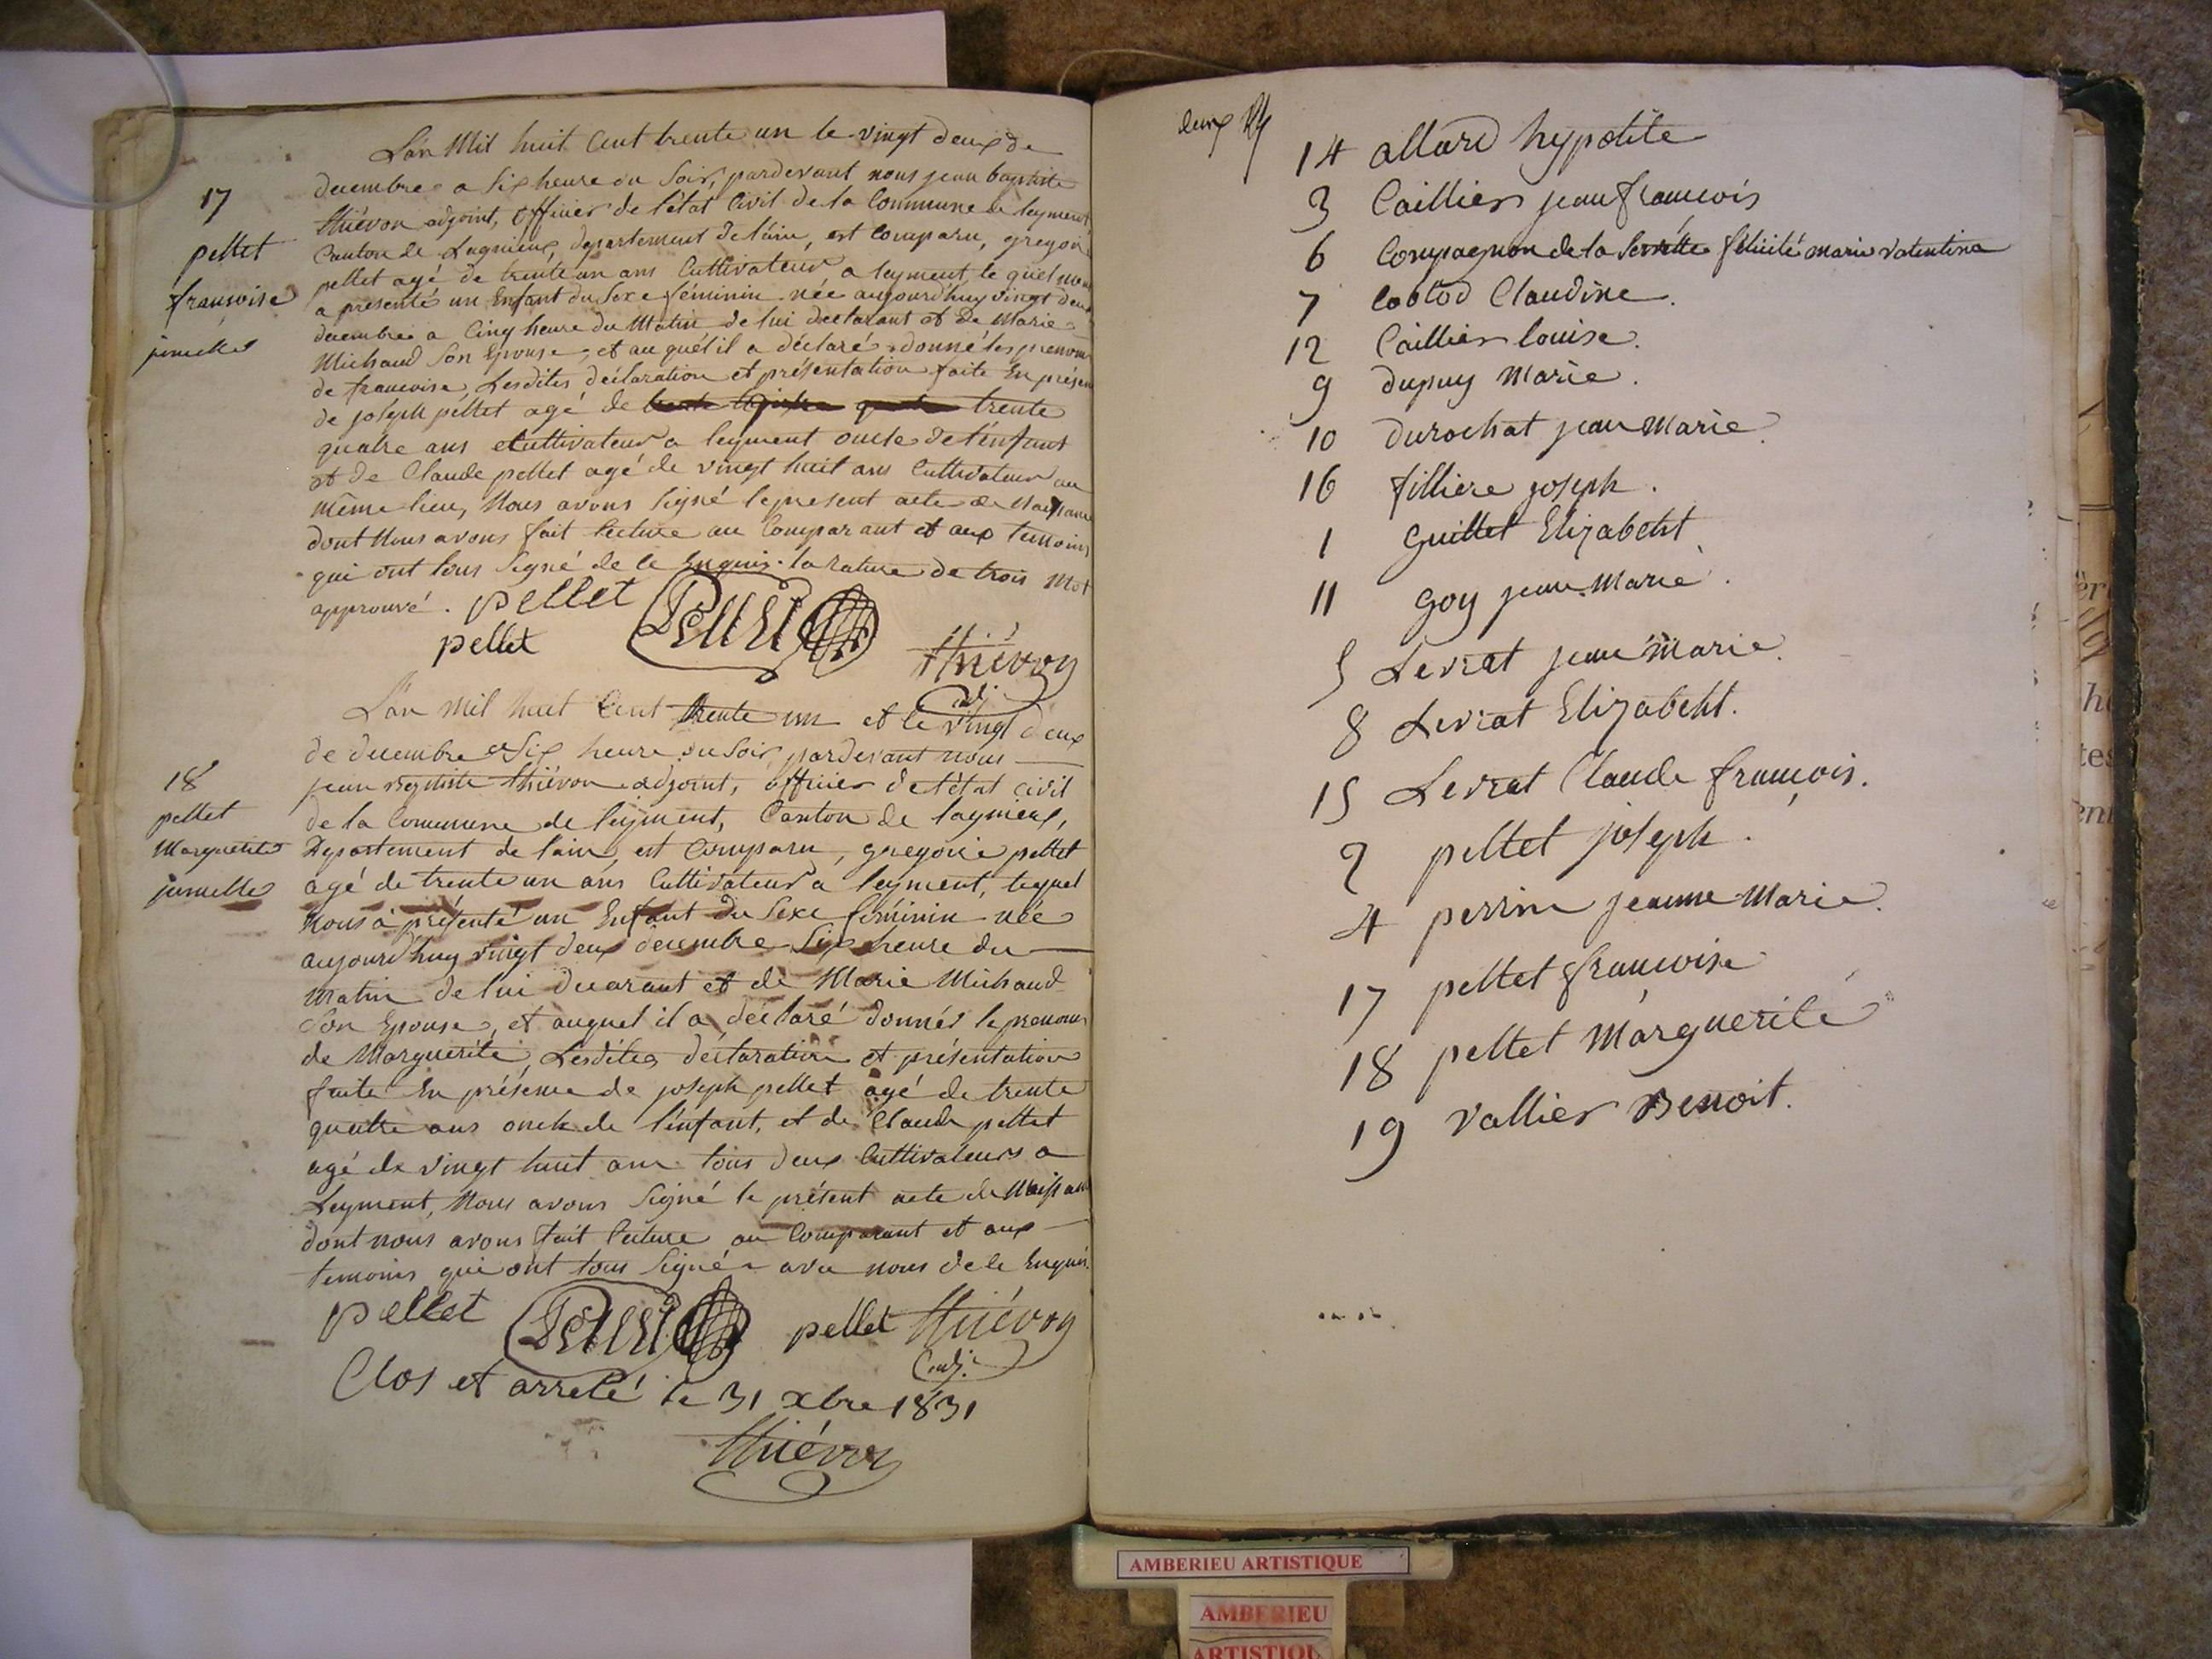 L'an Mil huit Cent trente un le vingt deux de
17
decembre a Six heure du Soir, pardevant nous jean baptiste
thiévon adjoint, officier de l'état Civil de la Commune de leyment
pellet
Canton de Lagnieux, departement de l'ain, est Comparu, gregoire
françoise
pellet agé de trente un ans Cultivateur a leyment, le quel nous
a presenté un Enfant du Sexe féminin née aujourd'huy vingt deux
jumelle
decembre a Cinq heure du Matin de lui declarant et De Marie
Michaud Son Epouse, et au quél il a déclaré donné les prenoms
de francoise, Lesdites déclaration et présentation faite En présence
de joseph pellet agé de trente
quatre ans Cultivateur a leyment oncle de l'énfant
et de Claude pellet agé de vingt huit ans Cultivateur au
même lieu, Nous avons Signé le present acte de Naissance
dont Nous avons fait lecture au Comparant et aux temoins
qui ont tous Signé de ce Enquis. la rature de trois Mot
approuvé. pellet Pellet
pellet
thiévon
adj.
L'an mil huit Cent trente un et le vingt deux
de decembre a Six heure du Soir, pardevant nous
18
jean Baptiste thiévon adjoint, officier de l'état civil
pellet
de la Commune de leyment, Canton de lagnieux,
Marguerite
Departement de l'ain, est Comparu, gregoire pellet
jumelle
agé de trente un ans Cultivateur a leyment, lequel
Nous à présenté un Enfant du Sexe féminin née
aujourd'huy vingt deux decembre Six heure du
Matin de lui decarant et de Marie Michaud
Son Epouse, et auquel il a déclaré donnér le prenoms
de Marguerite, Lesdites déclaration et présentation
faite En présence de joseph pellet agé de trente
quattre ans oncle de l'énfant, et de Claude pellet
agé de vingt huit ans tous deux Cultivateurs a
Leyment, Nous avons Signé le présent acte de Naissance
dont nous avons fait lecture au Comparant et aux
temoins qui ont tous Signé avec nous de ce Enquis.
pellet Pellet pellet thiévon
adj.
Clos et arrêté le 31 xbre 1831
thiévon
deux
14 allard hypolite
3 Caillier jean françois
6 Compagnon de la Servette félicité marie valentine
7 Cottod Claudine.
12 Caillier louise.
9 dupuy Marie.
10 durochat jean Marie.
16 filliere joseph.
1 Guillet Elizabeht.
11 Goy jean Marie.
5 Levrat jean Marie.
8 Levrat Elizabeht.
15 Levrat Claude françois.
2 pellet joseph.
4 perrin jeanne Marie.
17 pellet francoise
18 pellet Marguerite
19 vallier Benoit.
AMBERIEU ARTISTIQUE
AMBERIEU
ARTISTIQU